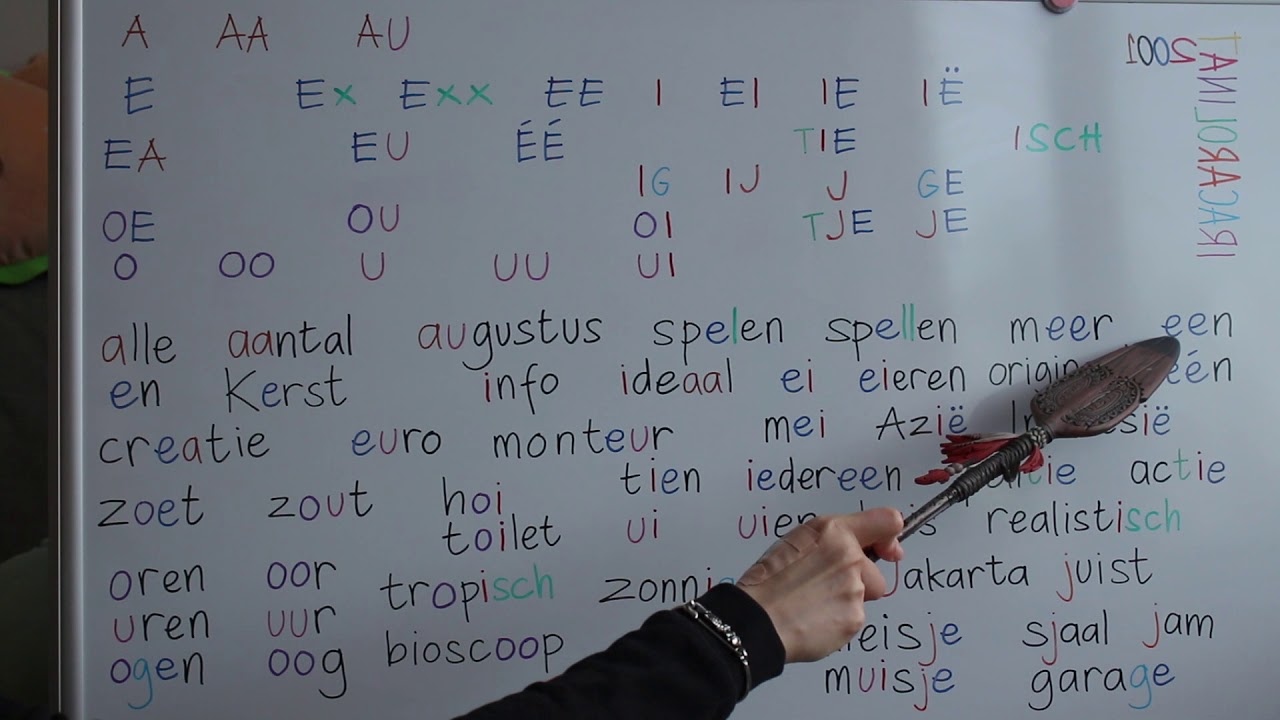 A AA AU
E Ex Exx EE I EI IE IË
EA EU ÉÉ TIE ISCH
IG IJ J GE
OE OU OI TJE JE
O OO U UU UI
alle aantal augustus spelen spellen meer een
en Kerst info ideaal ei eieren één
creatie euro monteur mei Azië
zoet zout hoi tien iedereen actie
toilet ui realistisch
oren oor tropisch Jakarta juist
uren uur bioscoop sjaal jam
ogen oog muisje garage